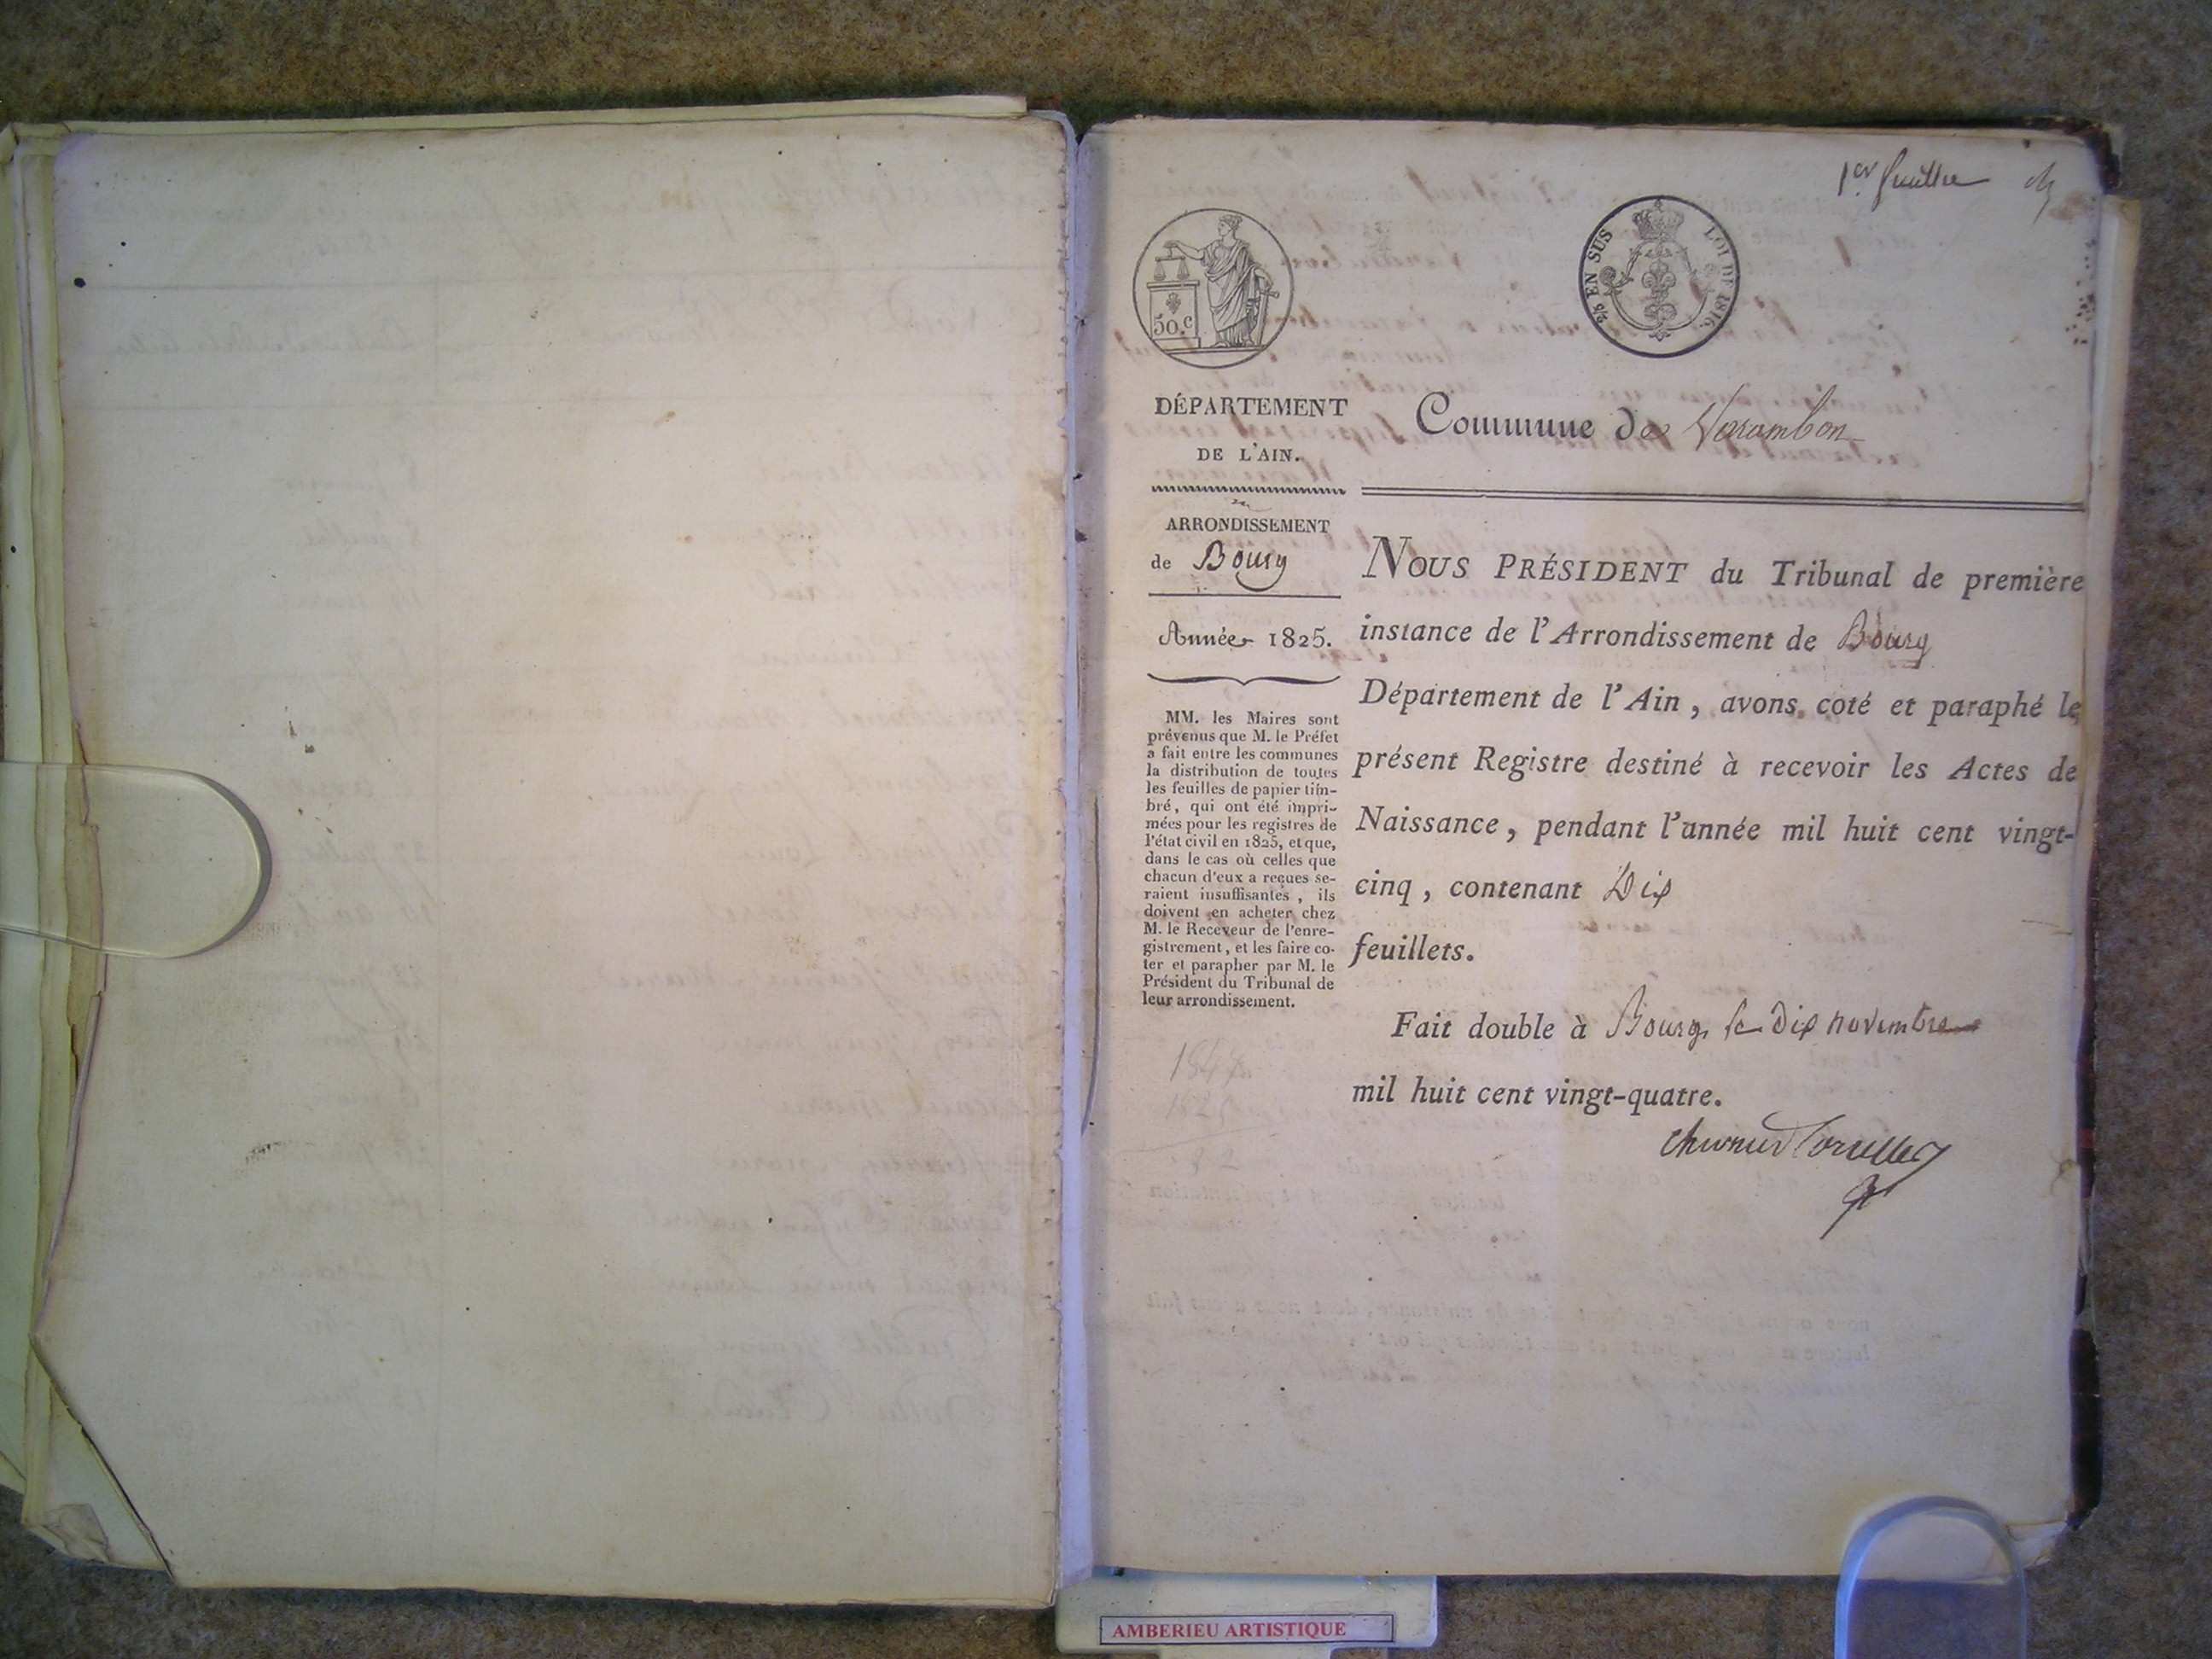 1er feuillet
50.c
2/5 EN SUS LOI DE 1816.
DÉPARTEMENT
DE L'AIN.
Commune de Varambon
ARRONDISSEMENT
de Bourg
Année 1825.
MM. les Maires sont
prévenus que M. le Préfet
a fait entre les communes
la distribution de toutes
les feuilles de papier tim-
bré, qui ont été impri-
mées pour les registres de
l'état civil en 1825, et que,
dans le cas où celles que
chacun d'eux a reçues se-
raient insuffisantes, ils
doivent en acheter chez
M. le Receveur de l'enre-
gistrement, et les faire co-
ter et parapher par M. le
Président du Tribunal de
leur arrondissement.
NOUS PRÉSIDENT du Tribunal de première
instance de l'Arrondissement de Bourg
Département de l'Ain, avons coté et paraphé le
présent Registre destiné à recevoir les Actes de
Naissance, pendant l'année mil huit cent vingt-
cinq, contenant Dix
feuillets.
Fait double à Bourg, le Dix novembre
mil huit cent vingt-quatre.
AMBERIEU ARTISTIQUE